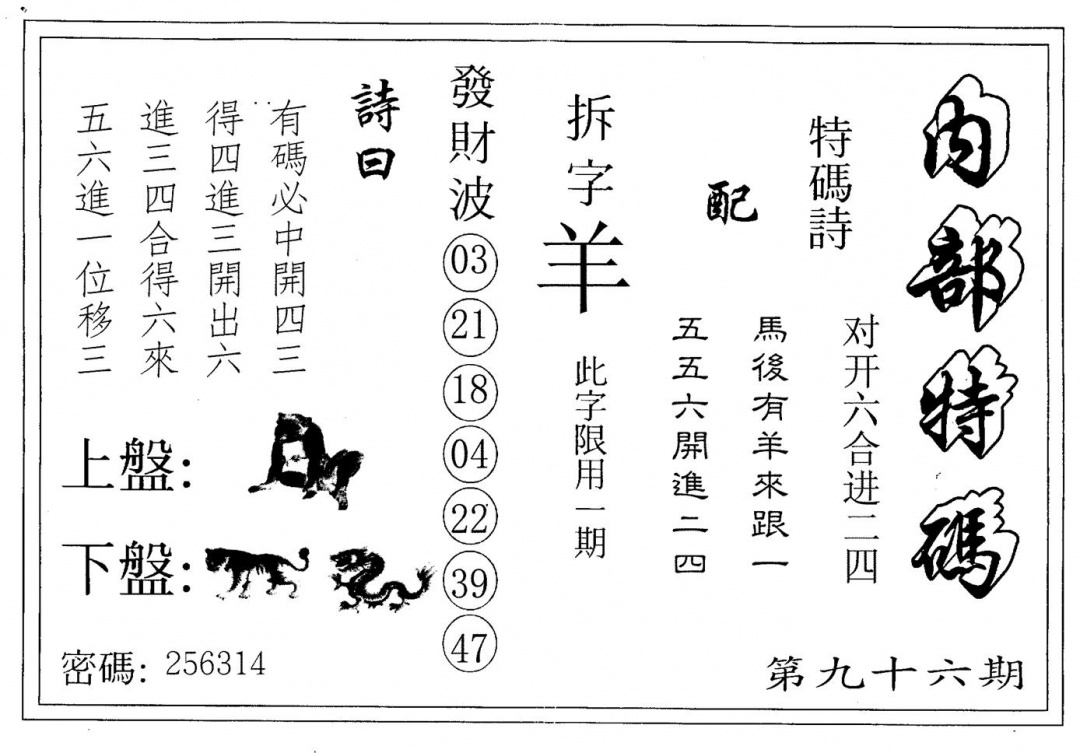 內部特碼
第九十六期
特碼詩
对开六合进二四
配
馬後有羊來跟一
五五六開進二四
拆字
羊
此字限用一期
發財波
03
21
18
04
22
39
47
詩曰
有碼必中開四三
得四進三開出六
進三四合得六來
五六進一位移三
上盤:
下盤:
密碼: 256314